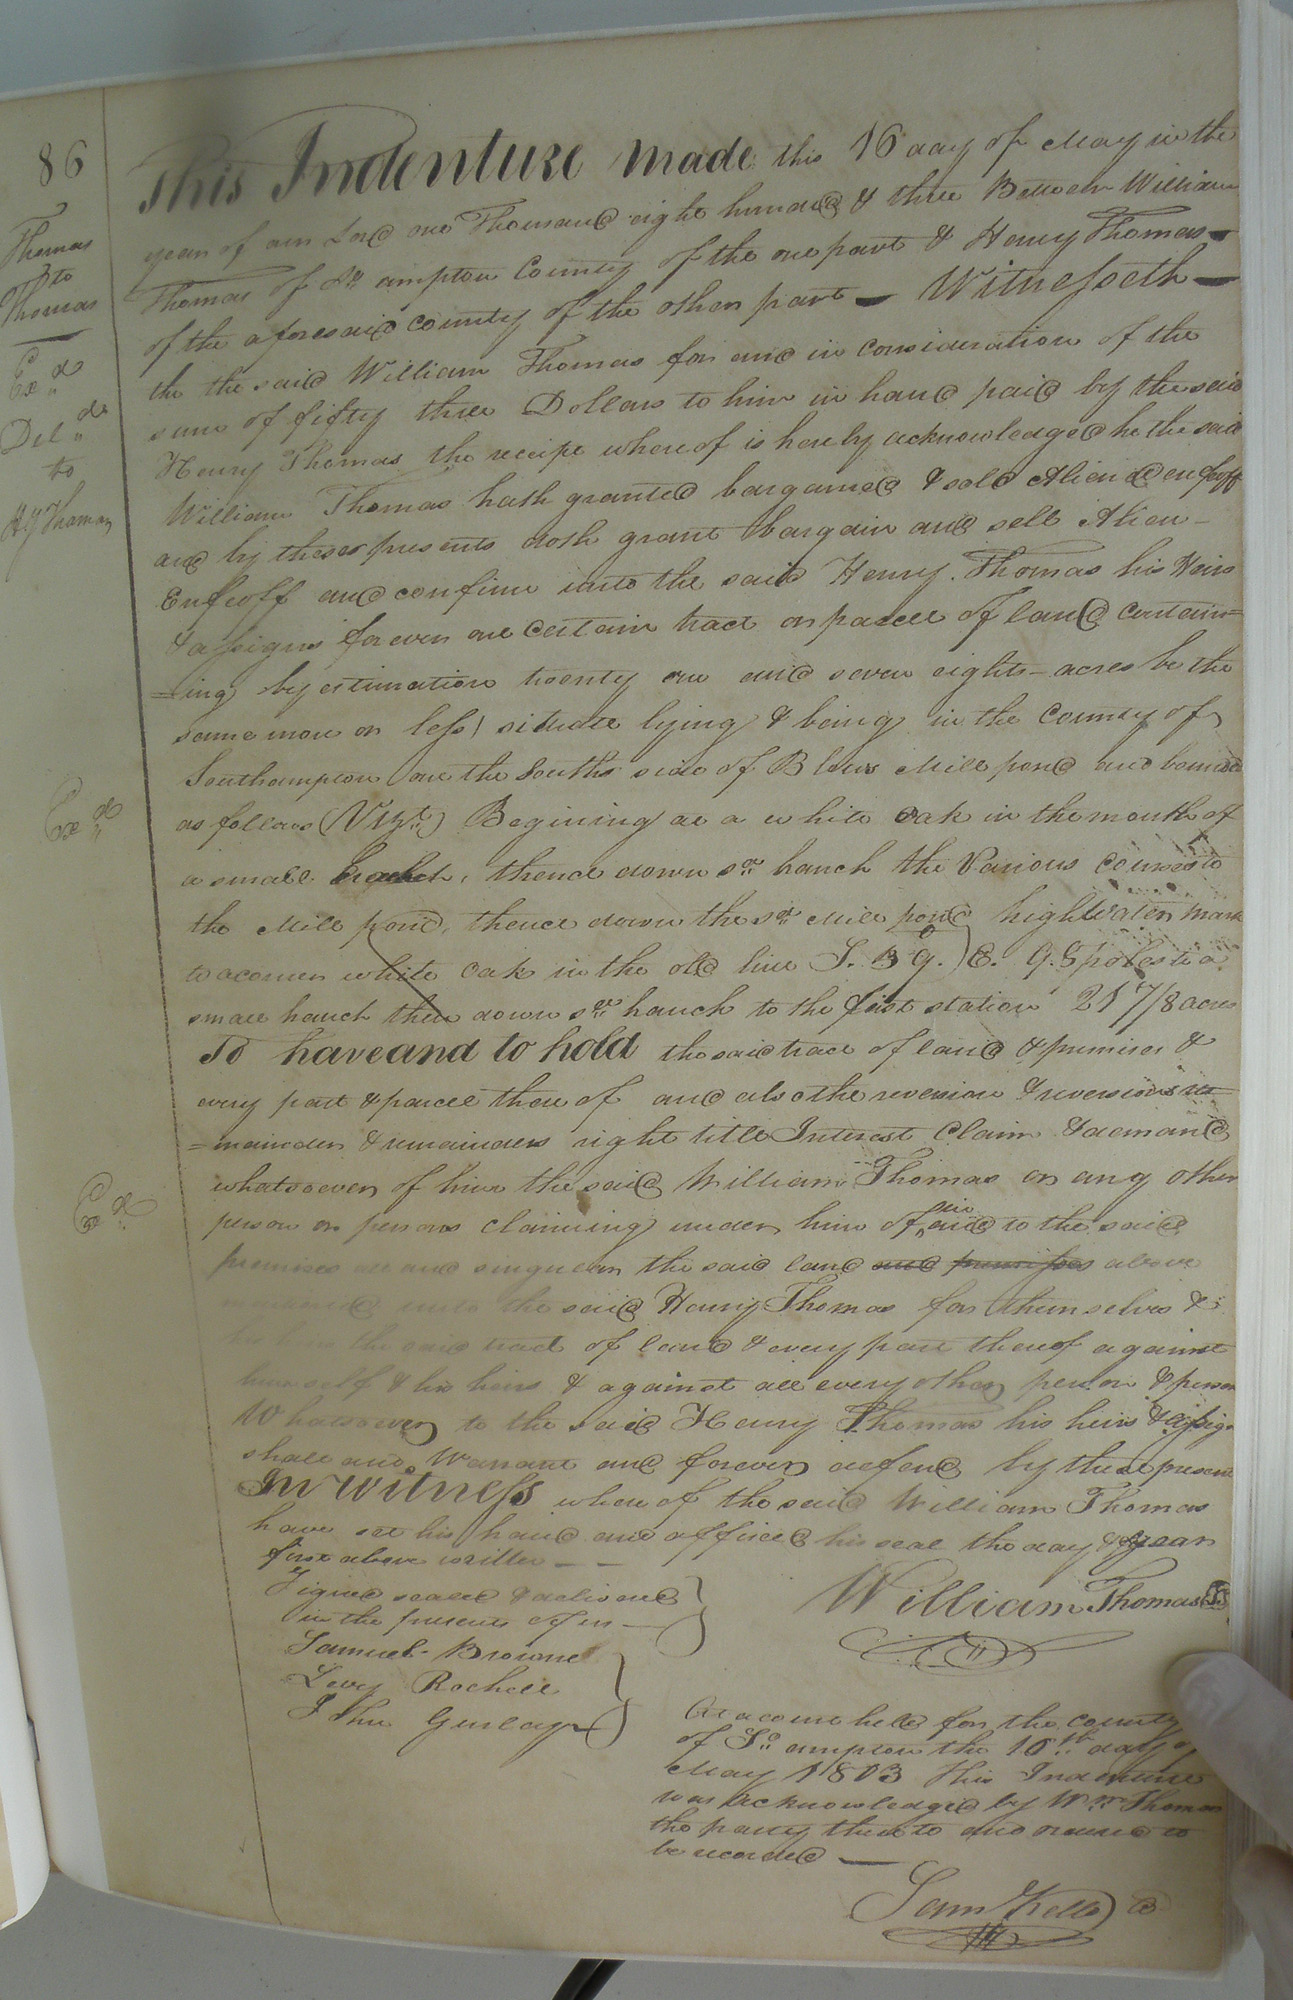 86
Thomas
to
Thomas
Exd
Deld
to
Hy Thomas
This Indenture made this 16 day of May in the
year of our Lord one Thousand eight hundred & three Between William
Thomas of So ampton County of the one part & Henry Thomas
of the aforesaid County of the other part — Witnesseth —
the the said William Thomas for and in Consideration of the
sum of fifty three Dollars to him in hand paid by the said
Henry Thomas the receipt whereof is hereby acknowledged he the said
William Thomas hath granted bargained & sold Alien'd enfeoff
and by these presents doth grant bargain and sell Alien
Enfeoff and confirm unto the said Henry Thomas his Heirs
& assigns forever one certain tract or parcel of land contain=
=ing by estimation twenty one and seven eights acres be the
same more or less) situate lying & being in the County of
Southampton on the South side of Blows Mill pond and bounded
Exd
as follows (Vizt) Begining at a white oak in the mouth of
a small , thence down sd branch the Various courses to
the Mill pond, thence down the sd Mill pond high water mark
to a corner white oak in the old line S. 89.) E. 95 poles to a
small branch then down sd branch to the first station 21 7/8 acres
To have and to hold the said tract of land & premises &
every part & parcel thereof and also the reversion & reversions re=
=mainder & remainders right title Interest Claim & demand
Exd
whatsoever of him the said William Thomas or any other
person or persons claiming under him of in and to the said
premises all and singular the said land and premises above
unto the said Henry Thomas for themselves &
the said tract of land & every part thereof against
himself & his heirs & against all every other person & person
Whatsoever to the said Henry Thomas his heirs & assigns
shall and Warrant and forever defend by these present
In Witness whereof the said William Thomas
have set his hand and affixed his seal the day & year
first above written — —
Signed sealed & delivered
in the presents of us —
Samuel Browne
Levy Rochell
John Gurley
William Thomas LS
At a court held for the County
of So ampton the 16th day of
May 1803 this Indenture
was acknowledged by Wm Thomas
the party thereto and ordered to
be recorded —
Sam Kello C